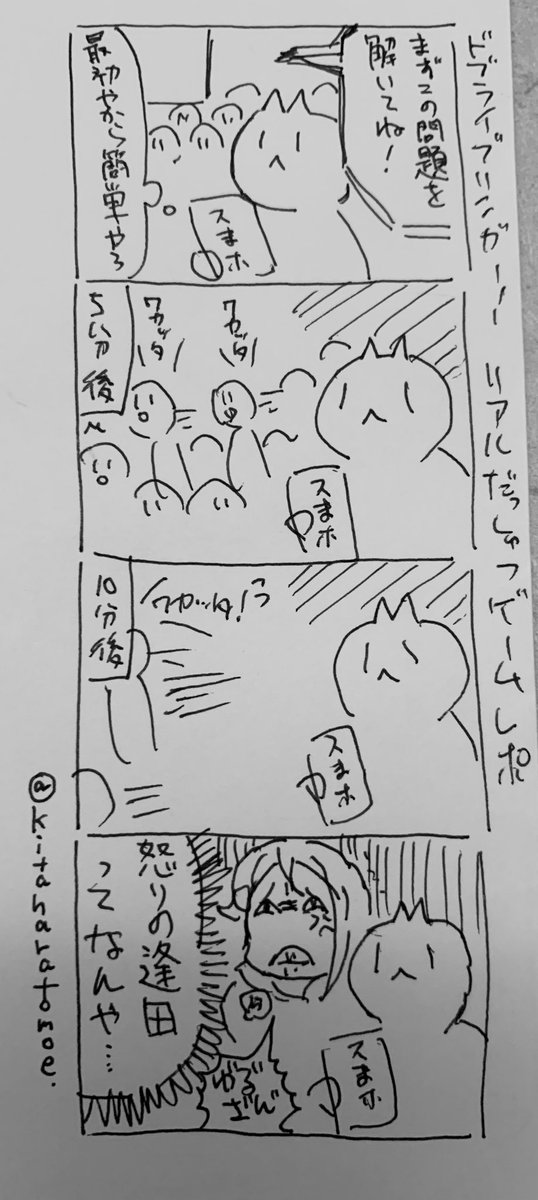 ドブライブリンガー！ リアルだっしゅつゲームレポ
まずこの問題を
解いてね！
スまホ
最初やから簡単やろ
ワカッタ
ワカッタ
スまホ
5分後
ワカッタ！
スまホ
10分後
スまホ
ゆるざん
怒りの逢田
ってなんや…
@kitaharatomoe.